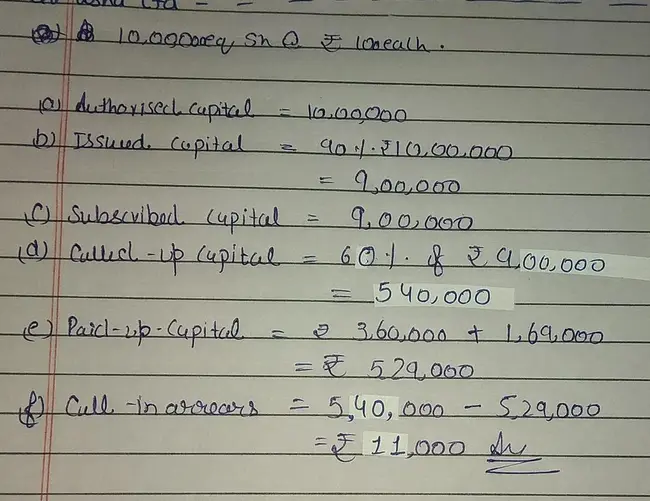 Ltd - -
10,000 eq sh @ ₹ 10 each.
(a) Authorised capital = 10,00,000
b) Issued capital = 90%. ₹10,00,000
= 9,00,000
(c) Subscribed capital = 9,00,000
(d) Called-up capital = 60%. of ₹ 9,00,000
= 540,000
e) Paid-up-Capital = ₹ 3,60,000 + 1,69,000
= ₹ 529,000
(f) Call-in arrears = 5,40,000 - 5,29,000
= ₹ 11,000